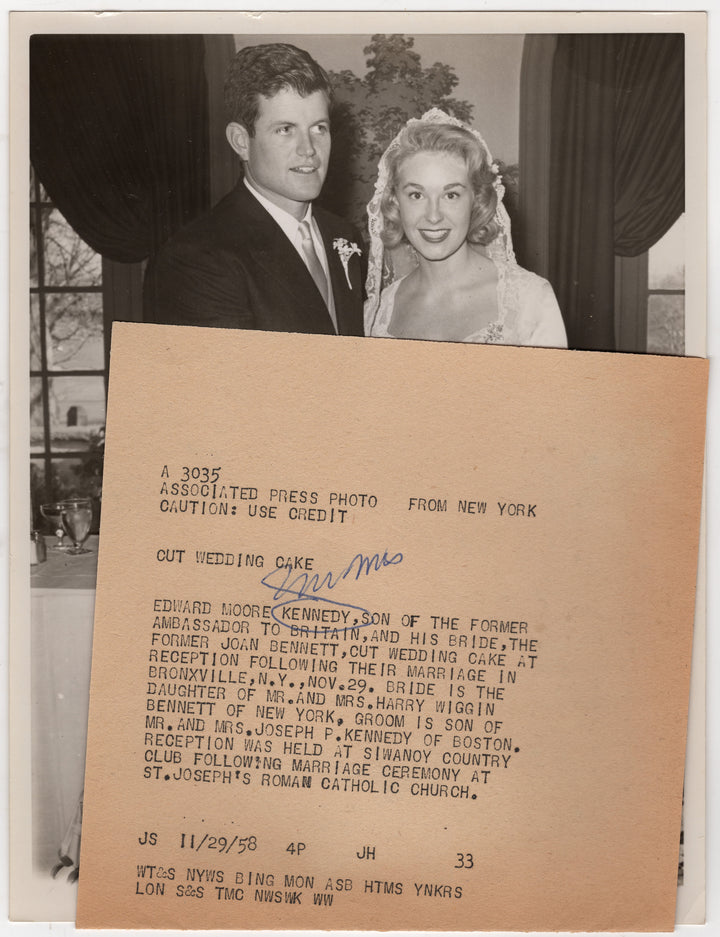 A 3035
ASSOCIATED PRESS PHOTO FROM NEW YORK
CAUTION: USE CREDIT
CUT WEDDING CAKE
Mr Mrs
EDWARD MOORE KENNEDY, SON OF THE FORMER
AMBASSADOR TO BRITAIN,AND HIS BRIDE,THE
FORMER JOAN BENNETT,CUT WEDDING CAKE AT
RECEPTION FOLLOWING THEIR MARRIAGE IN
BRONXVILLE,N.Y.,NOV.29. BRIDE IS THE
DAUGHTER OF MR.AND MRS.HARRY WIGGIN
BENNETT OF NEW YORK, GROOM IS SON OF
MR. AND MRS.JOSEPH P.KENNEDY OF BOSTON.
RECEPTION WAS HELD AT SIWANOY COUNTRY
CLUB FOLLOWING MARRIAGE CEREMONY AT
ST.JOSEPH'S ROMAN CATHOLIC CHURCH.
JS 11/29/58 4P JH 33
WT&S NYWS BING MON ASB HTMS YNKRS
LON S&S TMC NWSWK WW